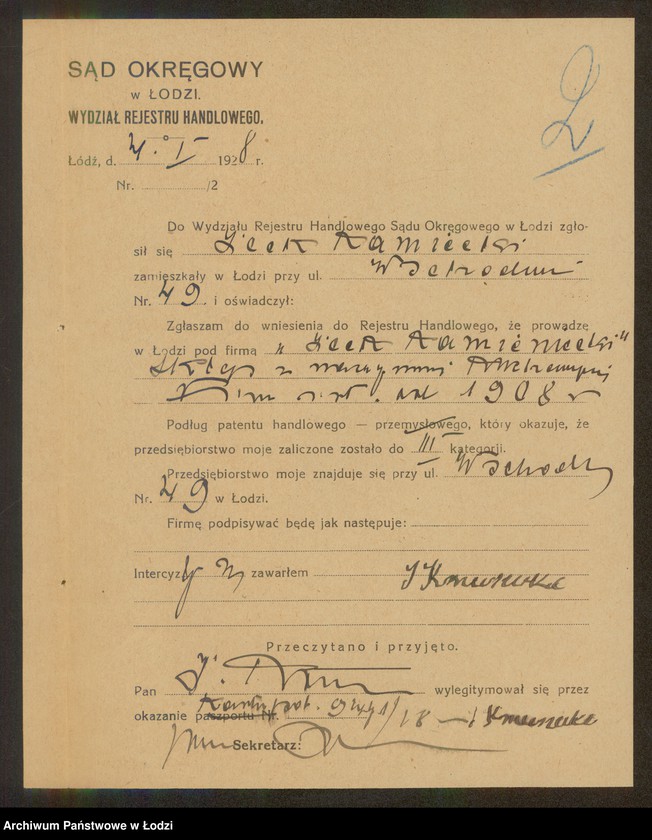 SĄD OKRĘGOWY
w ŁODZI.
WYDZIAŁ REJESTRU HANDLOWEGO.
2
Łódź, d. 4. I 1928 r.
Nr. /2
Do Wydziału Rejestru Handlowego Sądu Okręgowego w Łodzi zgło-
sił się Icek Kamieniecki
zamieszkały w Łodzi przy ul. Wschodniej
Nr. 49 i oświadczył:
Zgłaszam do wniesienia do Rejestru Handlowego, że prowadzę
w Łodzi pod firmą „Icek Kamieniecki"
Sklep z
od 1908 r
Podług patentu handlowego — przemysłowego, który okazuje, że
przedsiębiorstwo moje zaliczone zostało do III kategorji.
Przedsiębiorstwo moje znajduje się przy ul. Wschodn
Nr. 49 w Łodzi.
Firmę podpisywać będę jak następuje:
Intercyzy n zawarłem
Przeczytano i przyjęto.
Pan wylegitymował się przez
okazanie paszportu Nr. 9441/18
Sekretarz:
Archiwum Państwowe w Łodzi